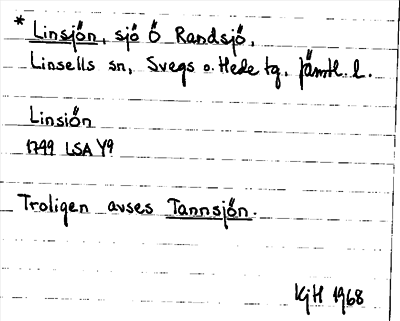 * Linsjön, sjö Ö Randsjö,
Linsells sn, Svegs o. Hede tg, Jämtl. l.
Linsiön
1749 LSA Y9
Troligen avses Tannsjön.
KjH 1968